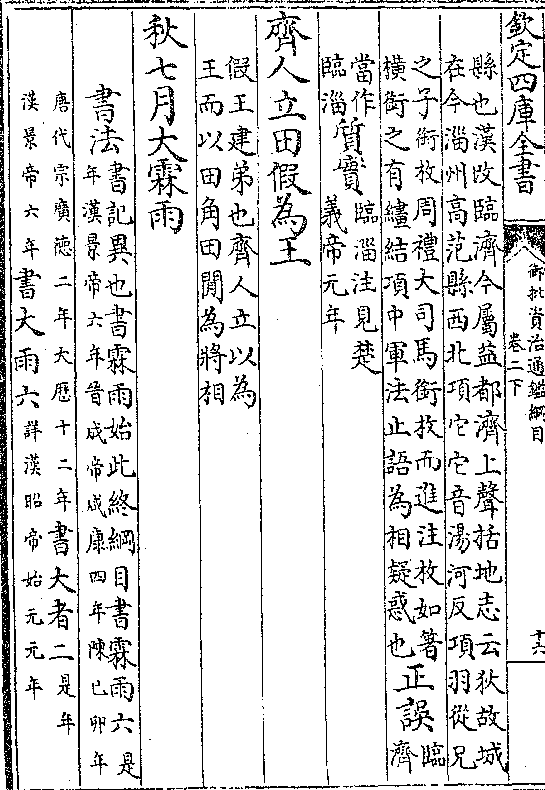 欽定四庫全書
御批資治通鑑綱目
卷二下
十六
縣也漢改臨濟今屬益都濟上聲括地志云狄故城
在今淄州高苑縣西北項它它音湯河反項羽從兄
之子銜枚周禮大司馬銜枚而進注枚如箸
橫銜之有繣結項中軍法止語為相疑惑也正誤臨濟
當作臨淄質實臨淄注見楚義帝元年
齊人立田假為王
假王建弟也齊人立以為
王而以田角田閒為將相
秋七月大霖雨
書法書記異也書霖雨始此終綱目書霖雨六是
年漢景帝六年晉成帝咸康四年陳己卯年
唐代宗廣德二年大厯十二年書大者二是年
漢景帝六年書大雨六詳漢昭帝始元元年